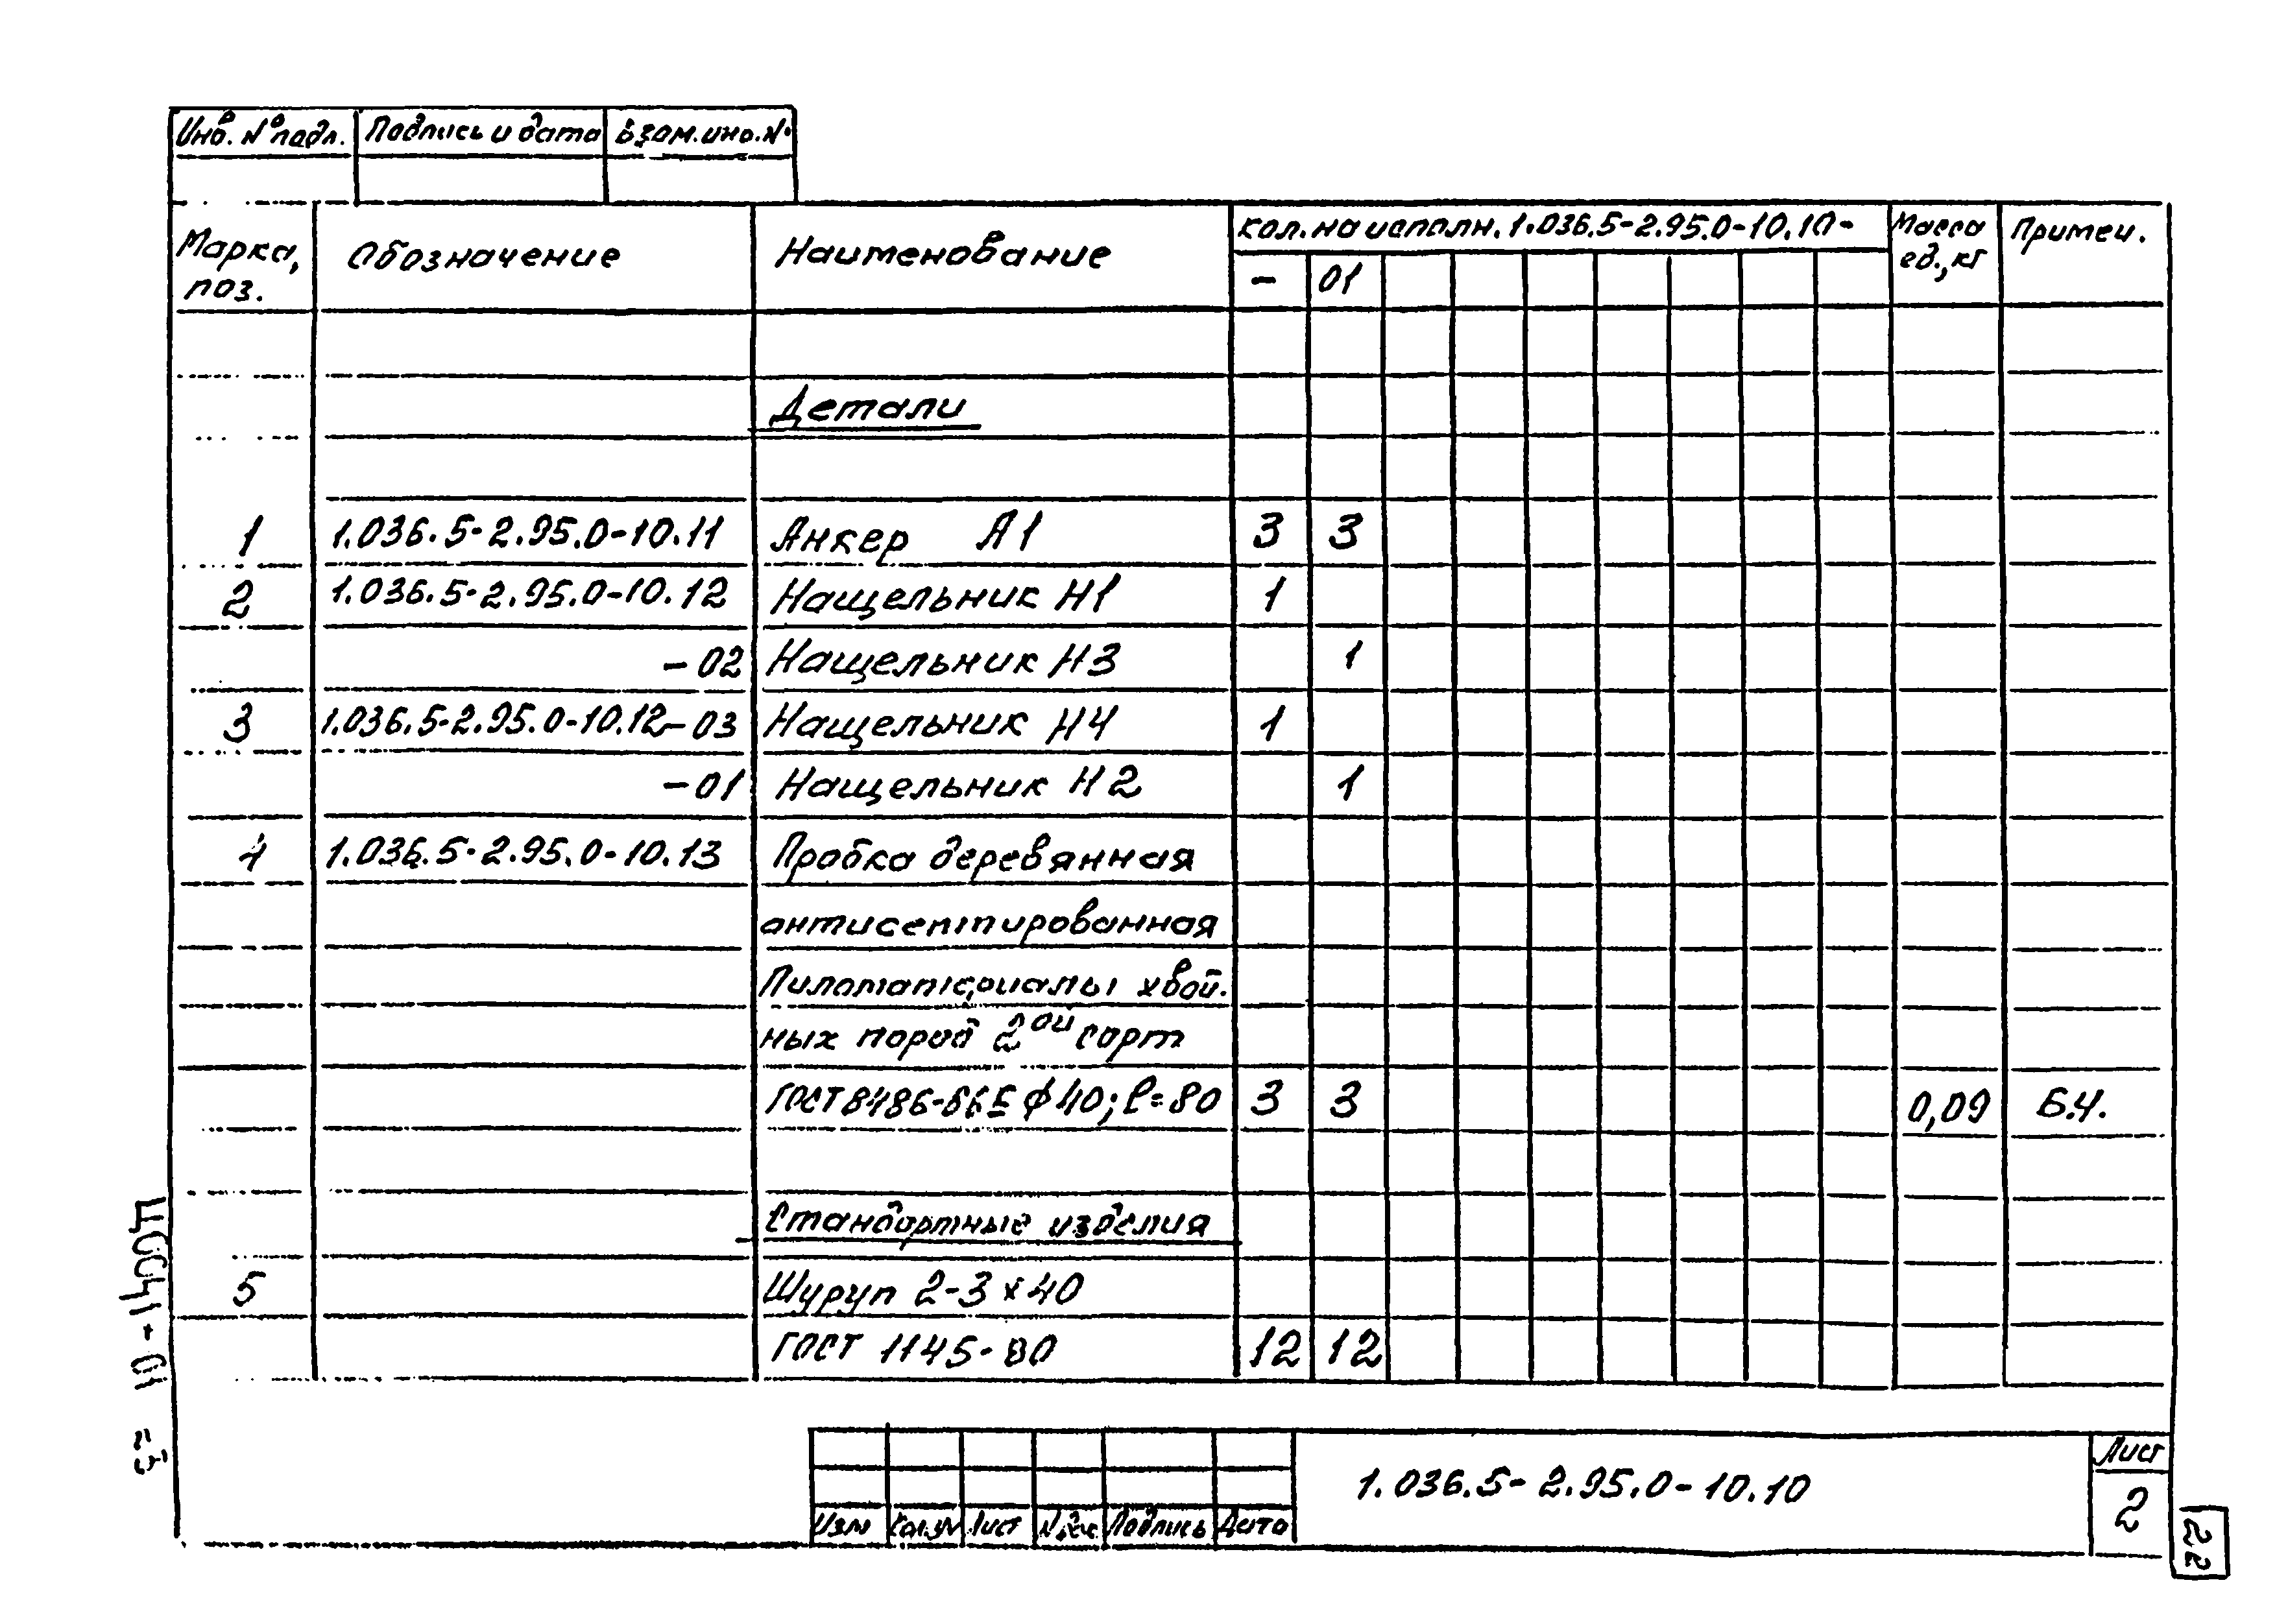 Инв. № подл. Подпись и дата Взам. инв. №
Марка, поз. Обозначение Наименование Кол. на исполн. 1.036.5-2.95.0-10.10- Масса ед., кг Примеч.
- 01
Детали
1 1.036.5-2.95.0-10.11 Анкер А1 3 3
2 1.036.5-2.95.0-10.12 Нащельник Н1 1
-02 Нащельник Н3 1
3 1.036.5-2.95.0-10.12-03 Нащельник Н4 1
-01 Нащельник Н2 1
4 1.036.5-2.95.0-10.13 Пробка деревянная
антисептированная
Пиломатериалы хвой-
ных пород 2ой сорт
ГОСТ 8486-86Е ϕ40; ℓ=80 3 3 0,09 Б.Ч.
Стандартные изделия
5 Шуруп 2-3×40
ГОСТ 1145-80 12 12
Ц0041-01 23
Изм Кол.уч Лист №док Подпись Дата
1.036.5-2.95.0-10.10
Лист
2
22